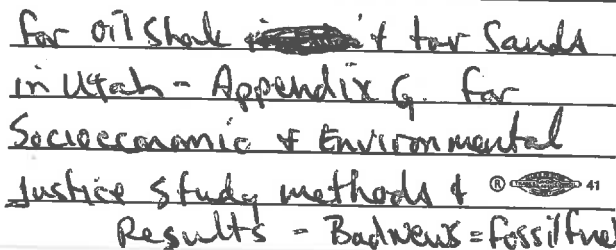 for oil shale & tar Sands
in Utah - Appendix G. for
Socioeconomic & Environmental
Justice Study methods & ® 41
Results - Bad news = fossil fuel